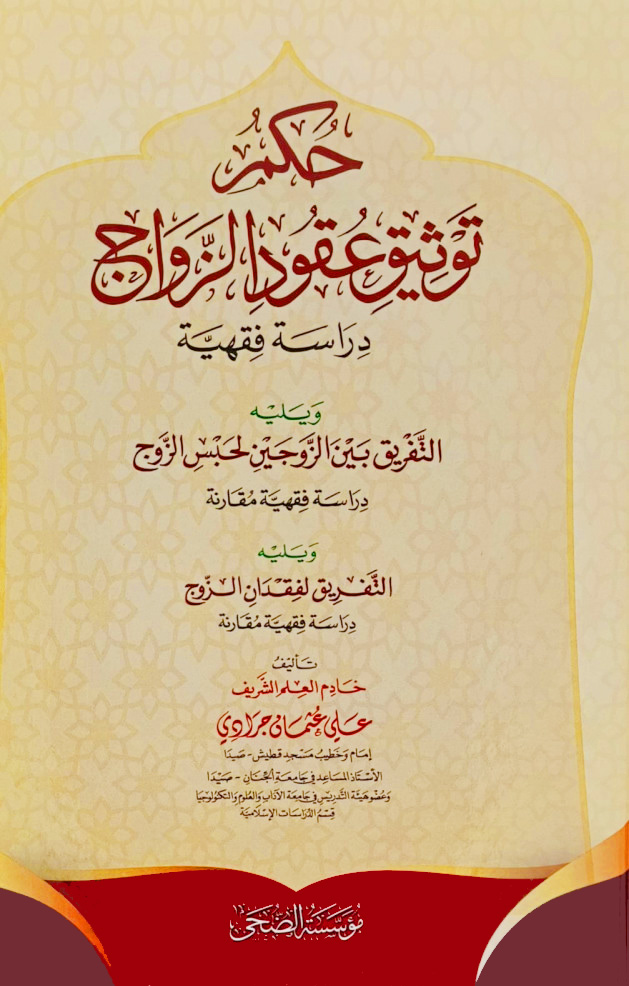 حُكْمُ
تَوْثِيقِ عُقُودِ الزَّوَاجِ
دِرَاسَة فِقهيَّة
وَيَليْه
التَّفْرِيق بَيْنَ الزَّوْجَيْنِ لحَبْسِ الزَّوج
دِرَاسَة فِقهيَّة مُقَارَنة
وَيَليْه
التَّفْرِيق لفِقْدَانِ الزَّوج
دِرَاسَة فِقهيَّة مُقَارَنة
تَأليْفُ
خَادِم العِلم الشَّريف
عَلي عُثمَان جَرَادِي
إمَام وَخَطِيبُ مَسْجِد قطيش - صَيدَا
الأُسْتَاذ المسَاعِد في جَامِعَة الجِنَان - صَيْدَا
وَعُضو هَيئَة التَّدريس في جَامِعَة الآدَاب وَالعُلوم وَالتّكنُولوجيَا
قِسْمُ الدِّرَاسَات الإسْلاميَّة
مُؤسَّسَة الضُّحَى